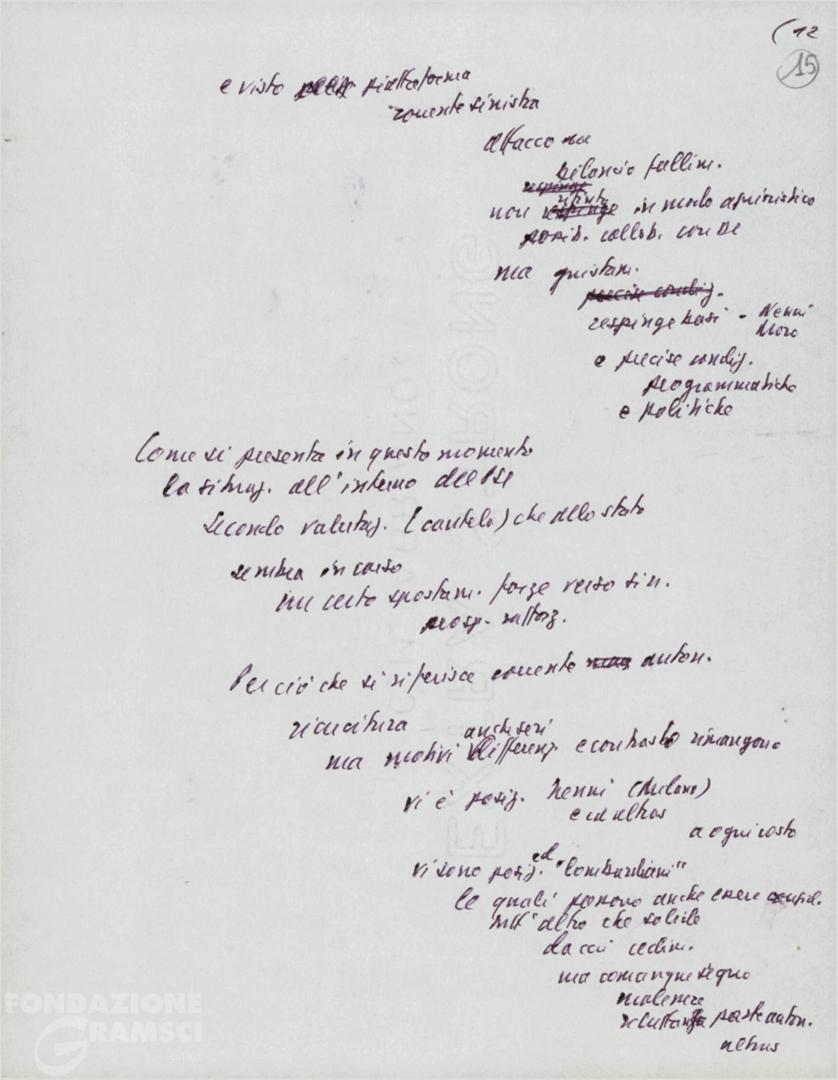 ( 12
15
e visto piattaforma
corrente sinistra
attacco su
bilancio fallim.
respinge
rifiuta
non respinge in modo aprioristico
possib. collab. con DC
ma giustam.
precise condiz.
respinge basi - Nenni
Moro
e precise condiz.
programmatiche
e politiche
Come si presenta in questo momento
la situaz. all'interno del PSI
Secondo valutaz. (cautela) che allo stato
sembra in corso
un certo spostam. forze verso sin.
prosp. rafforz.
Per ciò che si riferisce corrente auton.
ricucitura
anche seri
ma motivi differenz. e contrasto rimangono
vi è posiz. Nenni (Milano)
e
a ogni costo
vi sono posiz. ed "lombardiani"
le quali possono anche essere consid.
tutt'altro che solide
da cui cedim.
ma comunque segno
malessere
riluttanza parte auton.